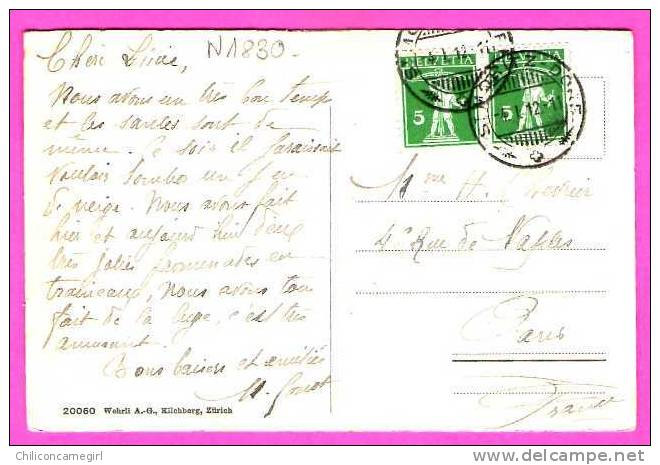 N1830-
Chère Lucie,
Nous avons un très beau temps
et les santés sont de
même. Ce soir il paraissait
vouloir tomber un peu
de neige. Nous avons fait
hier et aujourd'hui deux
très jolies promenades en
traineaux, nous avons tous
fait de la luge, c'est très
amusant.
Bons baisers et amitiés
M.
20060 Wehrli A.-G., Kilchberg, Zürich
HELVETIA
5
5
Mme H.
4 Rue de Naples
Paris
France
Chiliconcamegirl
www.delcampe.net